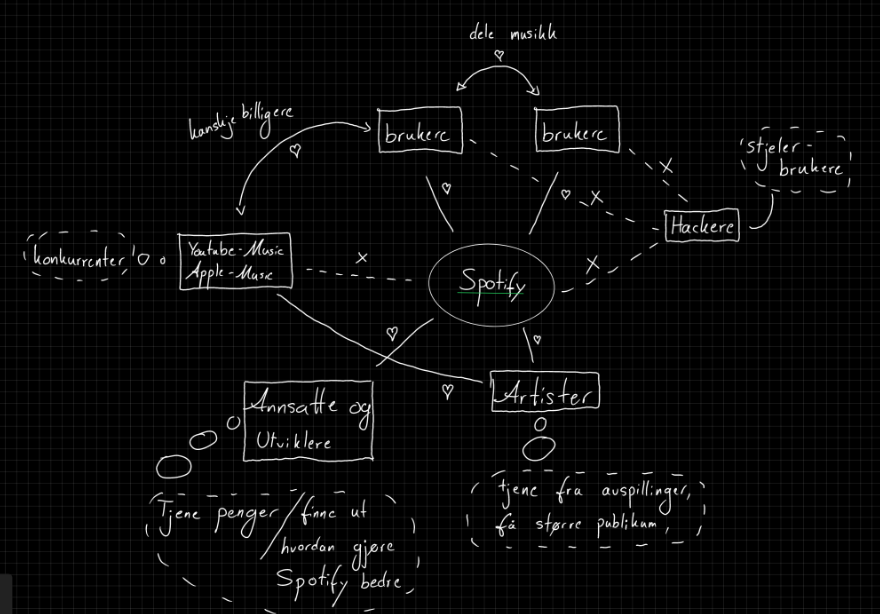 dele musikk
kanskje billigere
brukere
brukere
'stjeler-
brukere
Hackere
konkurrenter
Youtube-Music
Apple-Music
Spotify
Annsatte og
Utviklere
Artister
Tjene penger/finne ut
hvordan gjøre
Spotify bedre,
tjene fra avspillinger,
få større publikum,